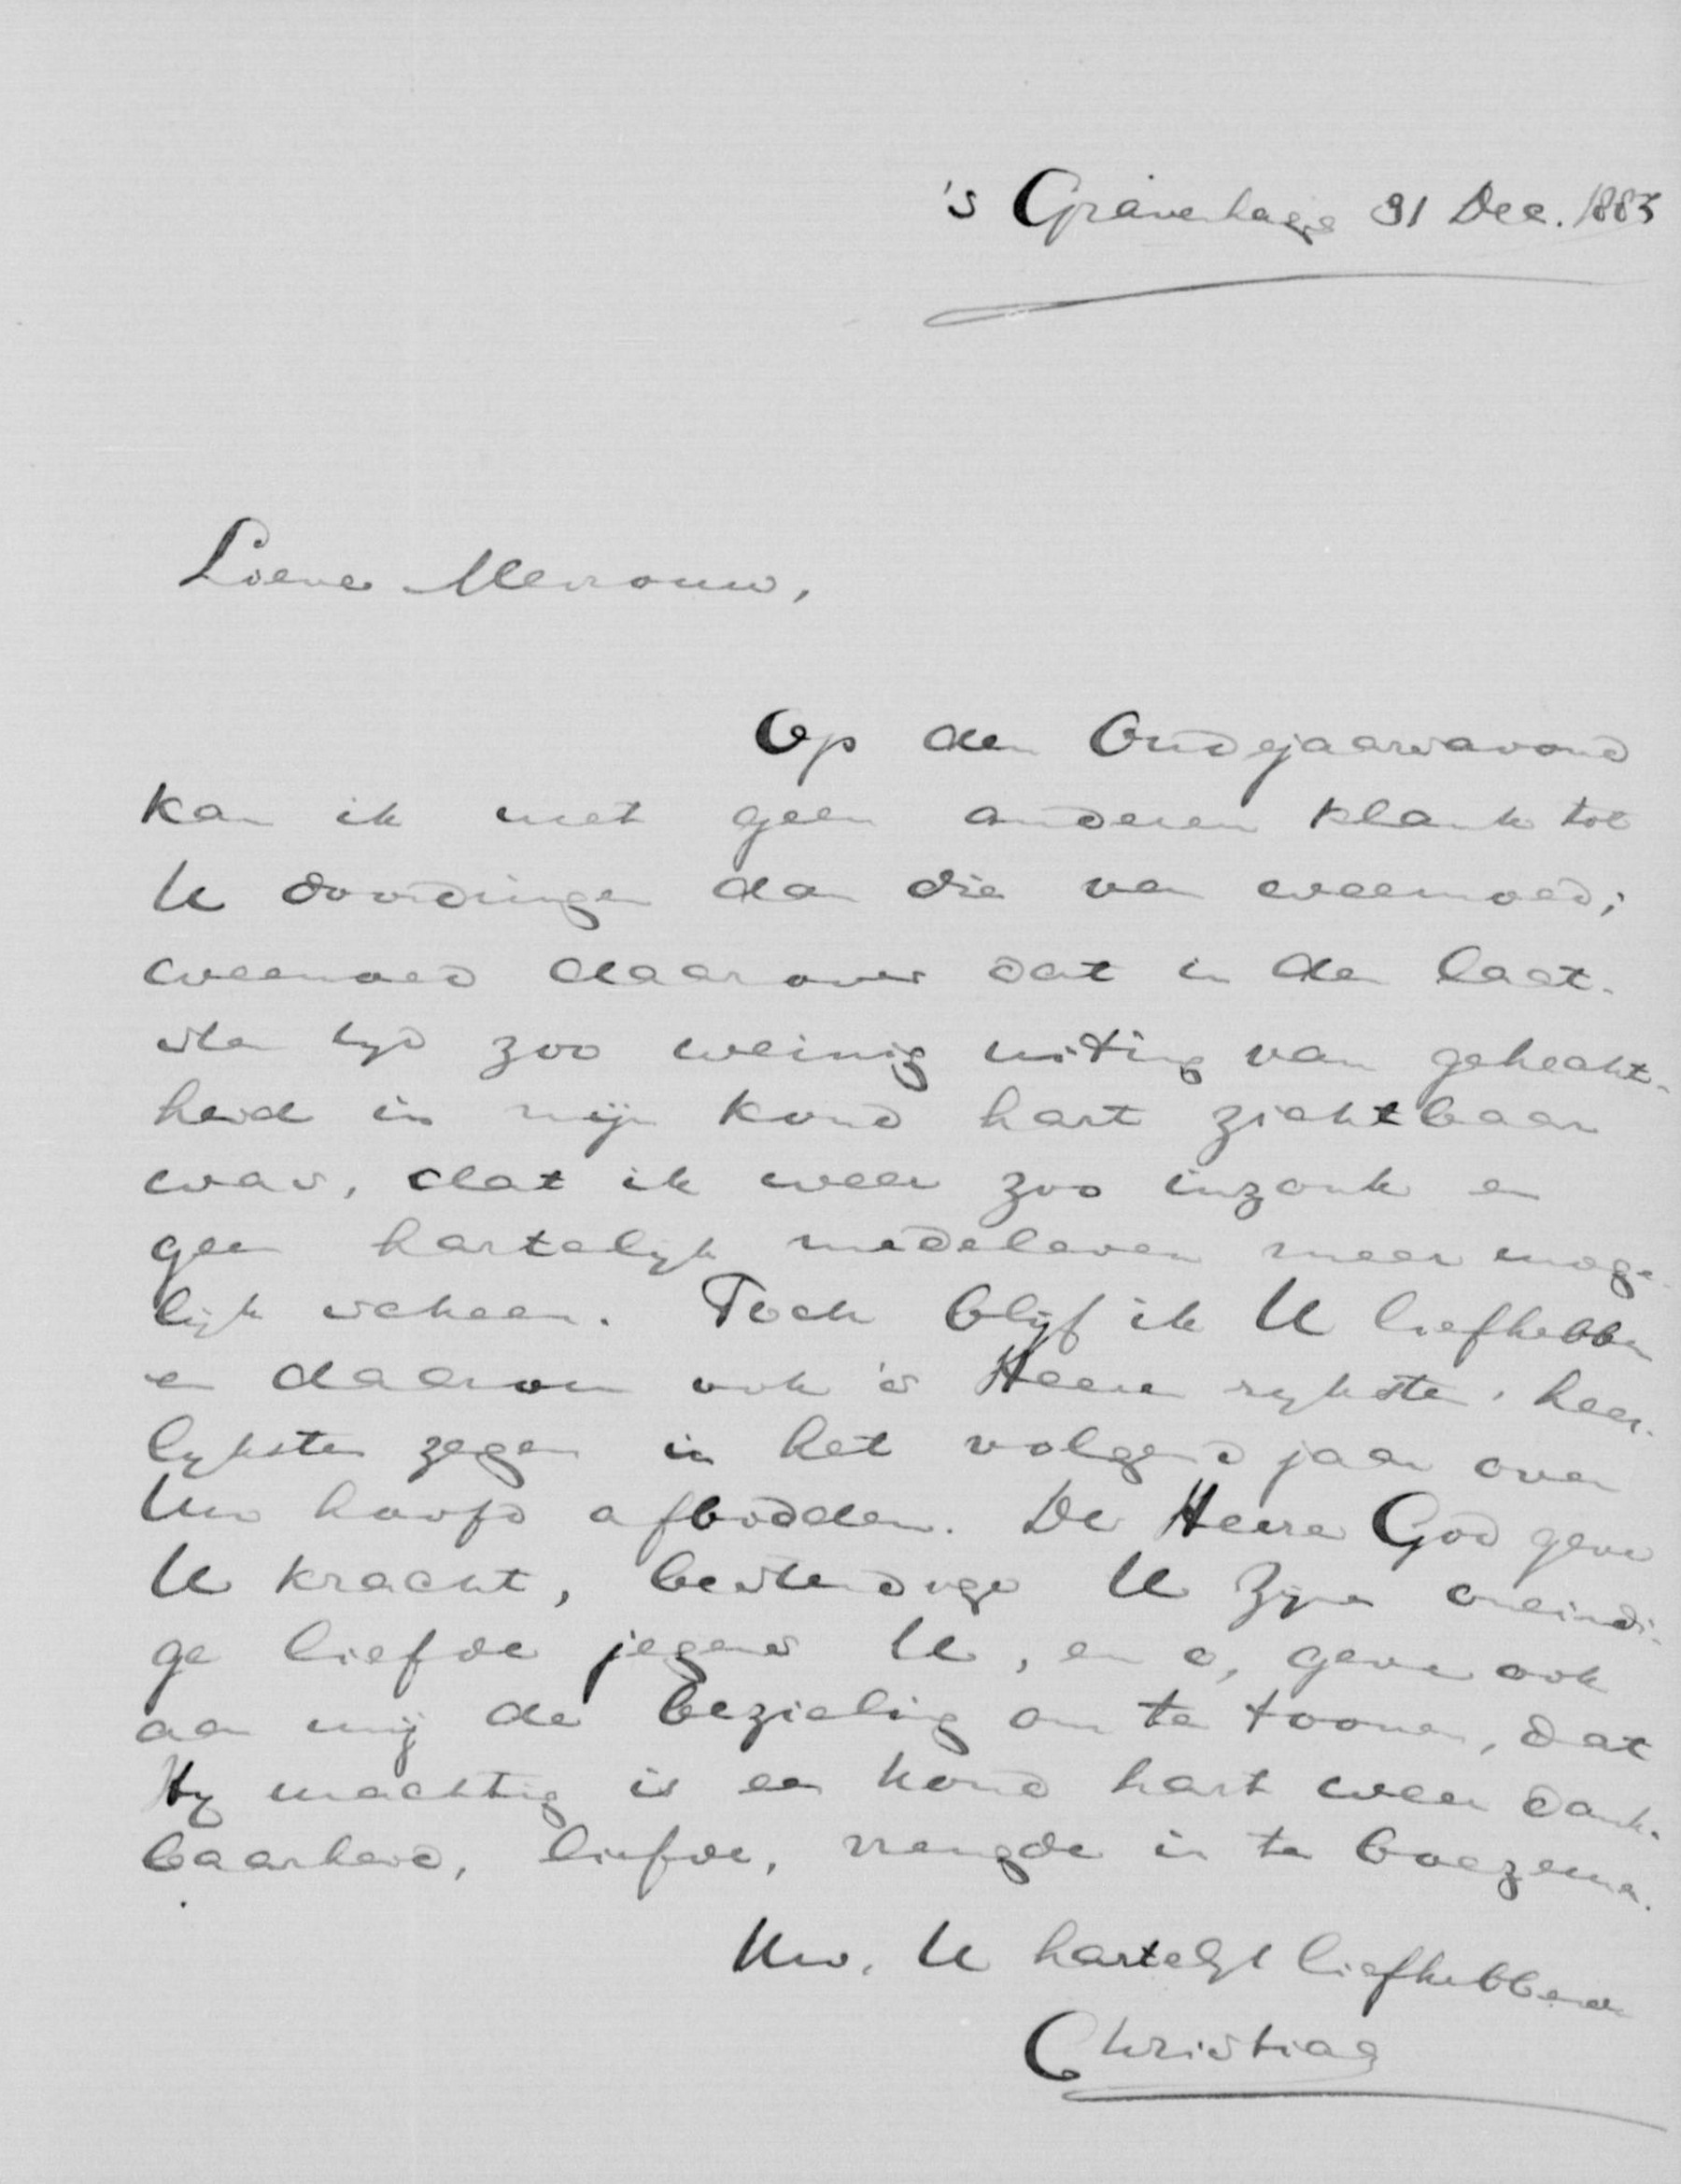 's Gravenhage 31 Dec. 1883
Lieve Mevrouw,
Op den Oudejaarsavond
kan ik met geen anderen klank tot
U doordringen dan die van weemoed;
weemoed daarover dat in den laat-
sten tyd zoo weinig uiting van gehecht-
heid in mijn koud hart zichtbaar
was, dat ik weer zoo inzonk en
geen hartelyk medeleven meer moge-
lijk scheen. Toch blijf ik U liefhebben
en daarom ook 's Heeren rykste, heer-
lykste zegen in het volgend jaar over
Uw hoofd afbidden. De Heere God geve
U kracht, bestendige U Zyne oneindi-
ge liefde jegens U, en o, geve ook
aan mij de bezieling om te toonen, dat
Hy machtig is een koud hart weer dank-
baarheid, liefde, vreugde in te boezemen.
Uw, U hartelyk liefhebbende
Christiaan